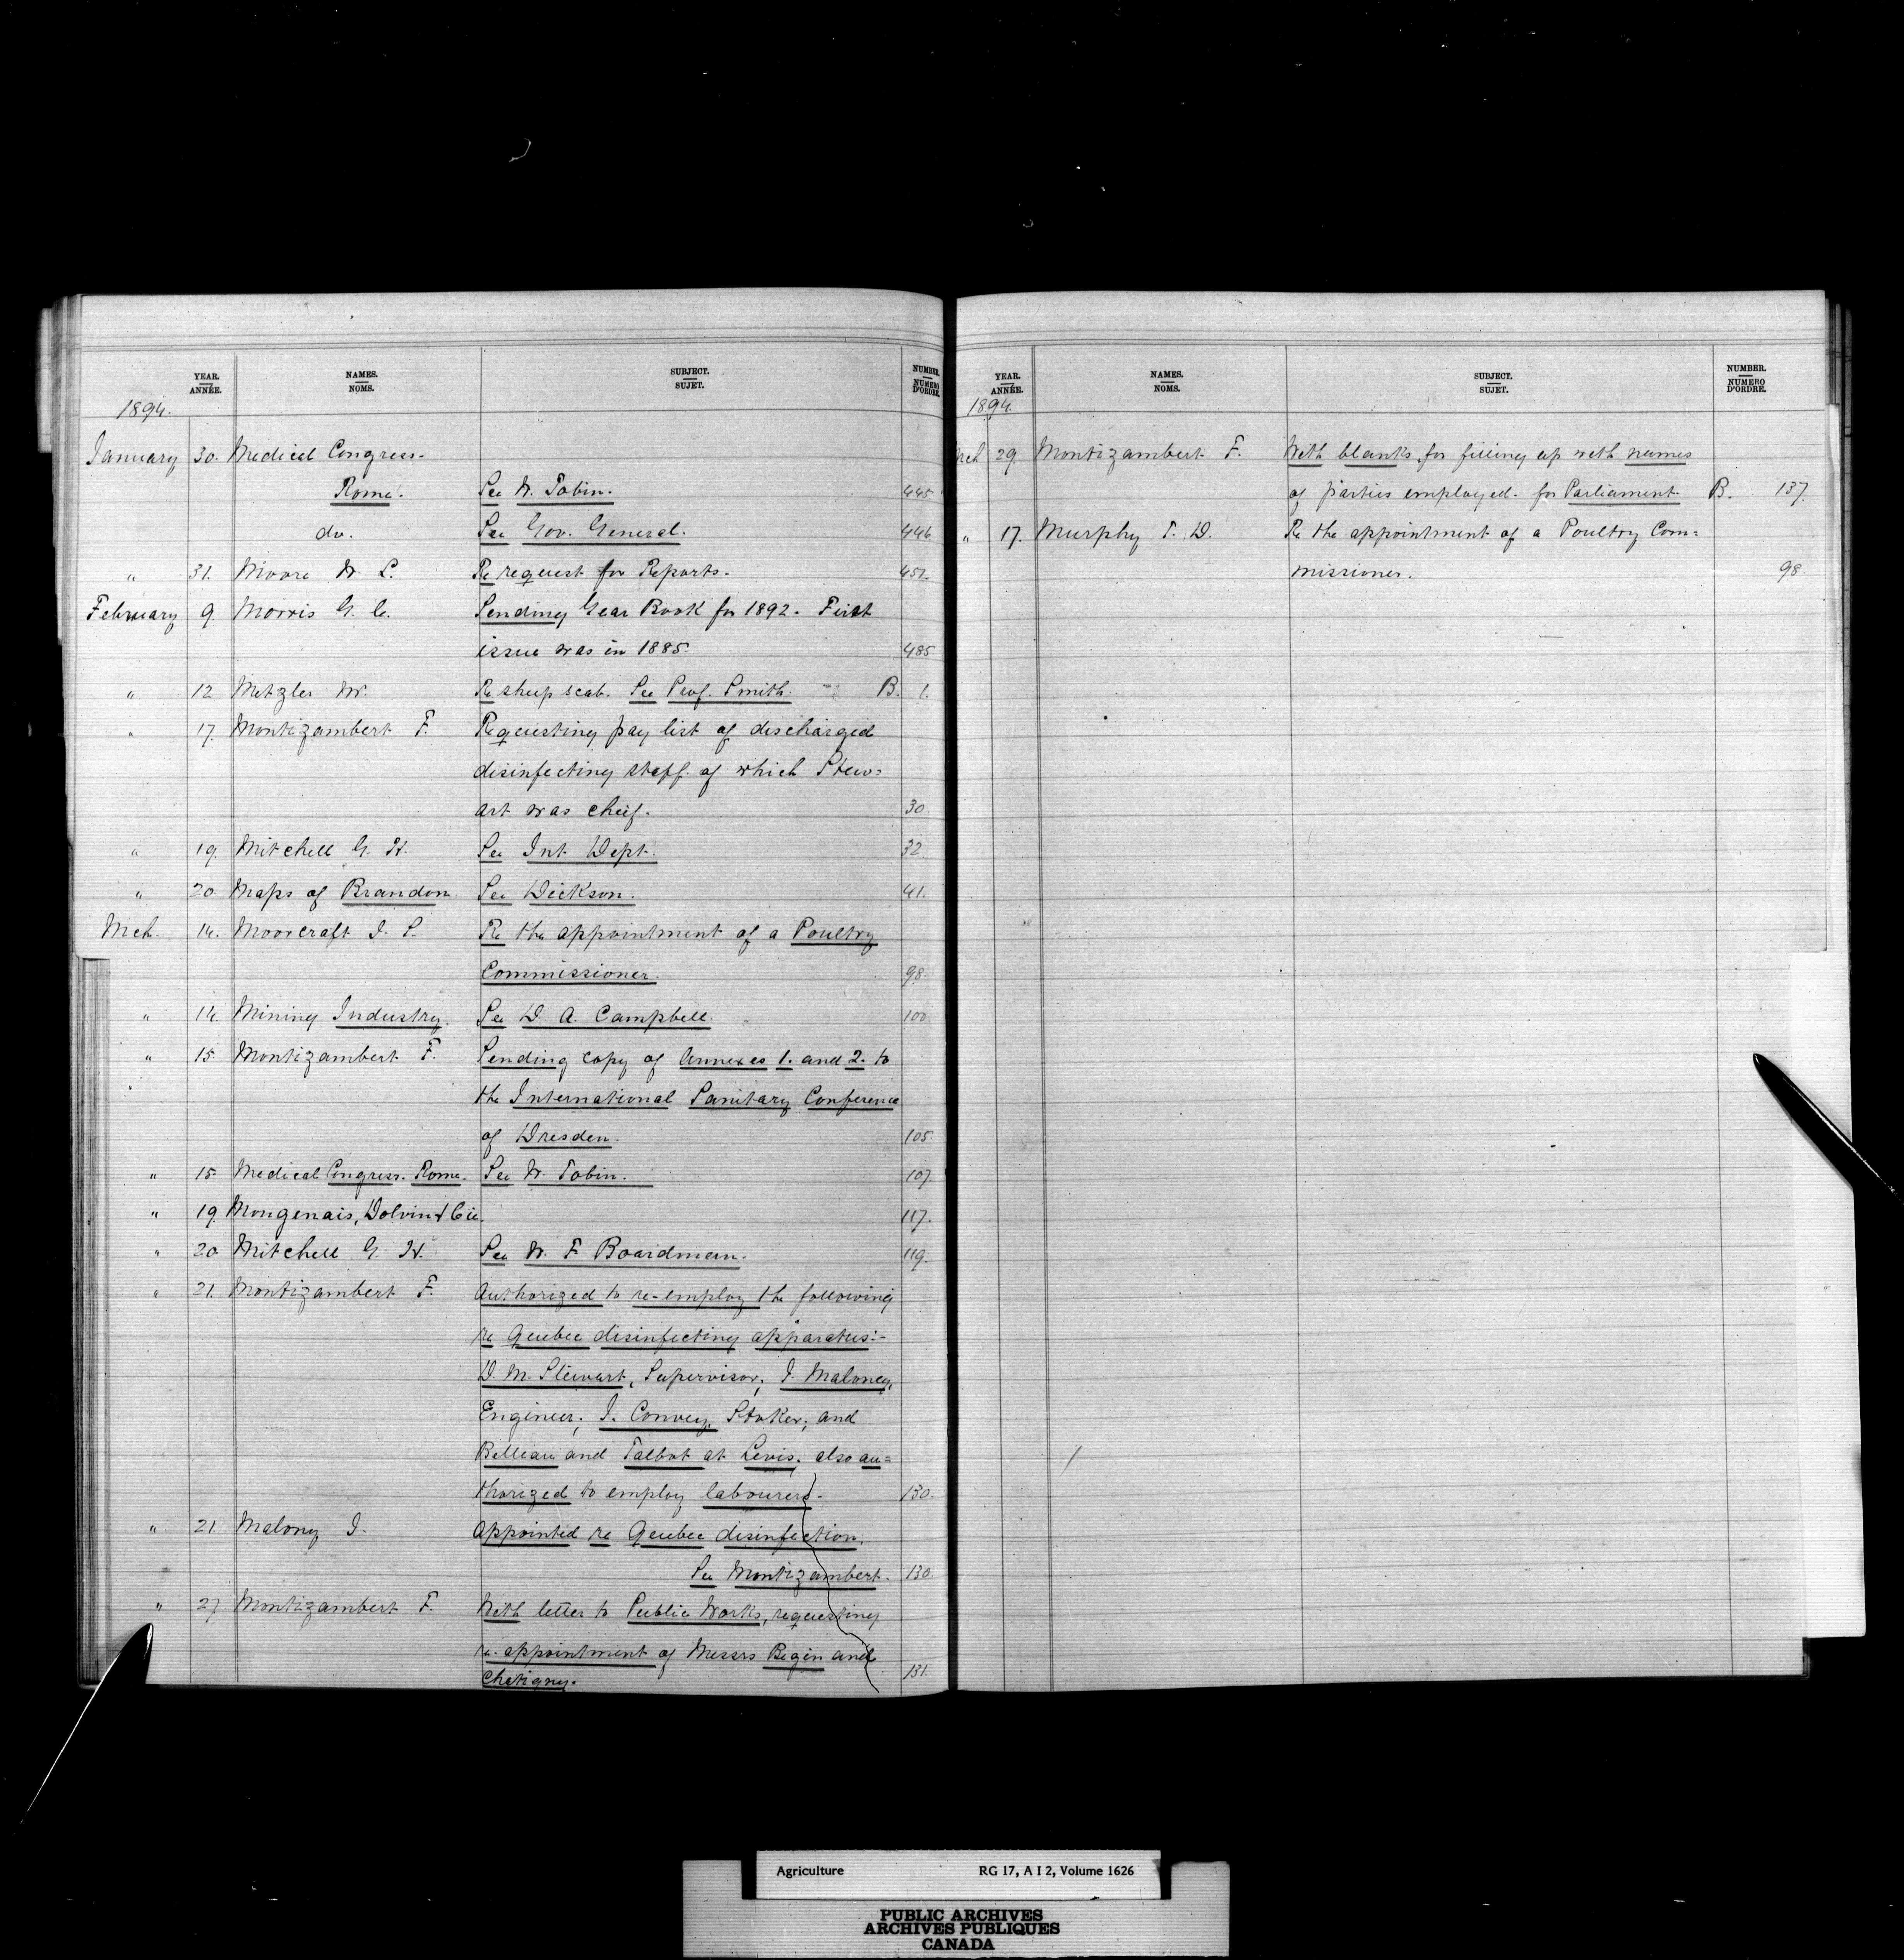 YEAR. ANNÉE. NAMES. NOMS. SUBJECT. SUJET. NUMBER. NUMERO D'ORDRE.
1894.
January 30. Medical Congress-
Rome. See W. Tobin. 445.
do. See Gov. General. 446.
" 31. Moore W. L. Re request for Reports. 451.
February 9. Morris G. C. Sending Year Book for 1892. First
issue was in 1885. 485.
" 12 Metzler W. Re sheep scab. See Prof. Smith. B. 1.
" 17. Montizambert F. Requesting pay list of discharged
disinfecting staff. of which Stew=
art was chief. 30.
" 19. Mitchell G. H. See Int Dept. 32
" 20. Maps of Brandon. See Dickson. 41.
Mch. 14. Moorcraft J. P. Re the appointment of a Poultry
Commissioner. 98.
" 14. Mining Industry. See D. A. Campbell. 100
" 15. Montizambert F. Sending copy of Annexes 1. and 2. to
the International Sanitary Conference
of Dresden. 105.
" 15. Medical Congress. Rome. See W. Tobin. 107.
" 19. Mongenais, Dolvin & Cie. 117.
" 20. Mitchell G. H. See W. F Boardman. 119.
" 21. Montizambert F. Authorized to re-employ the following
re Quebec disinfecting apparatus:-
D. M. Stewart, Supervisor; J. Maloney,
Engineer; J. Convey, Stoker; and
Belleau and Talbot at Levis; also au=
thorized to employ labourers. 130.
" 21. Malony J. Appointed re Quebec disinfection.
See Montizambert. 130.
" 27. Montizambert F. With letter to Public Works, requesting
re-appointment of Messrs Begin and
Chetigny. 131.
YEAR. ANNÉE. NAMES. NOMS. SUBJECT. SUJET. NUMBER. NUMERO D'ORDRE.
1894.
Mch 29. Montizambert F. With blanks for filling up with names
of parties employed. for Parliament B. 137.
" 17. Murphy T. D. Re the appointment of a Poultry Com=
missioner. 98.
Agriculture RG 17, A I 2, Volume 1626
PUBLIC ARCHIVES
ARCHIVES PUBLIQUES
CANADA